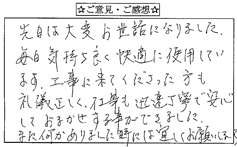 ☆ご意見・ご感想☆
先日は大変お世話になりました。
毎日気持ち良く快適に使用してい
ます。工事に来てくださった方も
礼儀正しく、仕事も迅速丁寧で安心
しておまかせする事ができました。
また何かありました時には宜しくお願いします